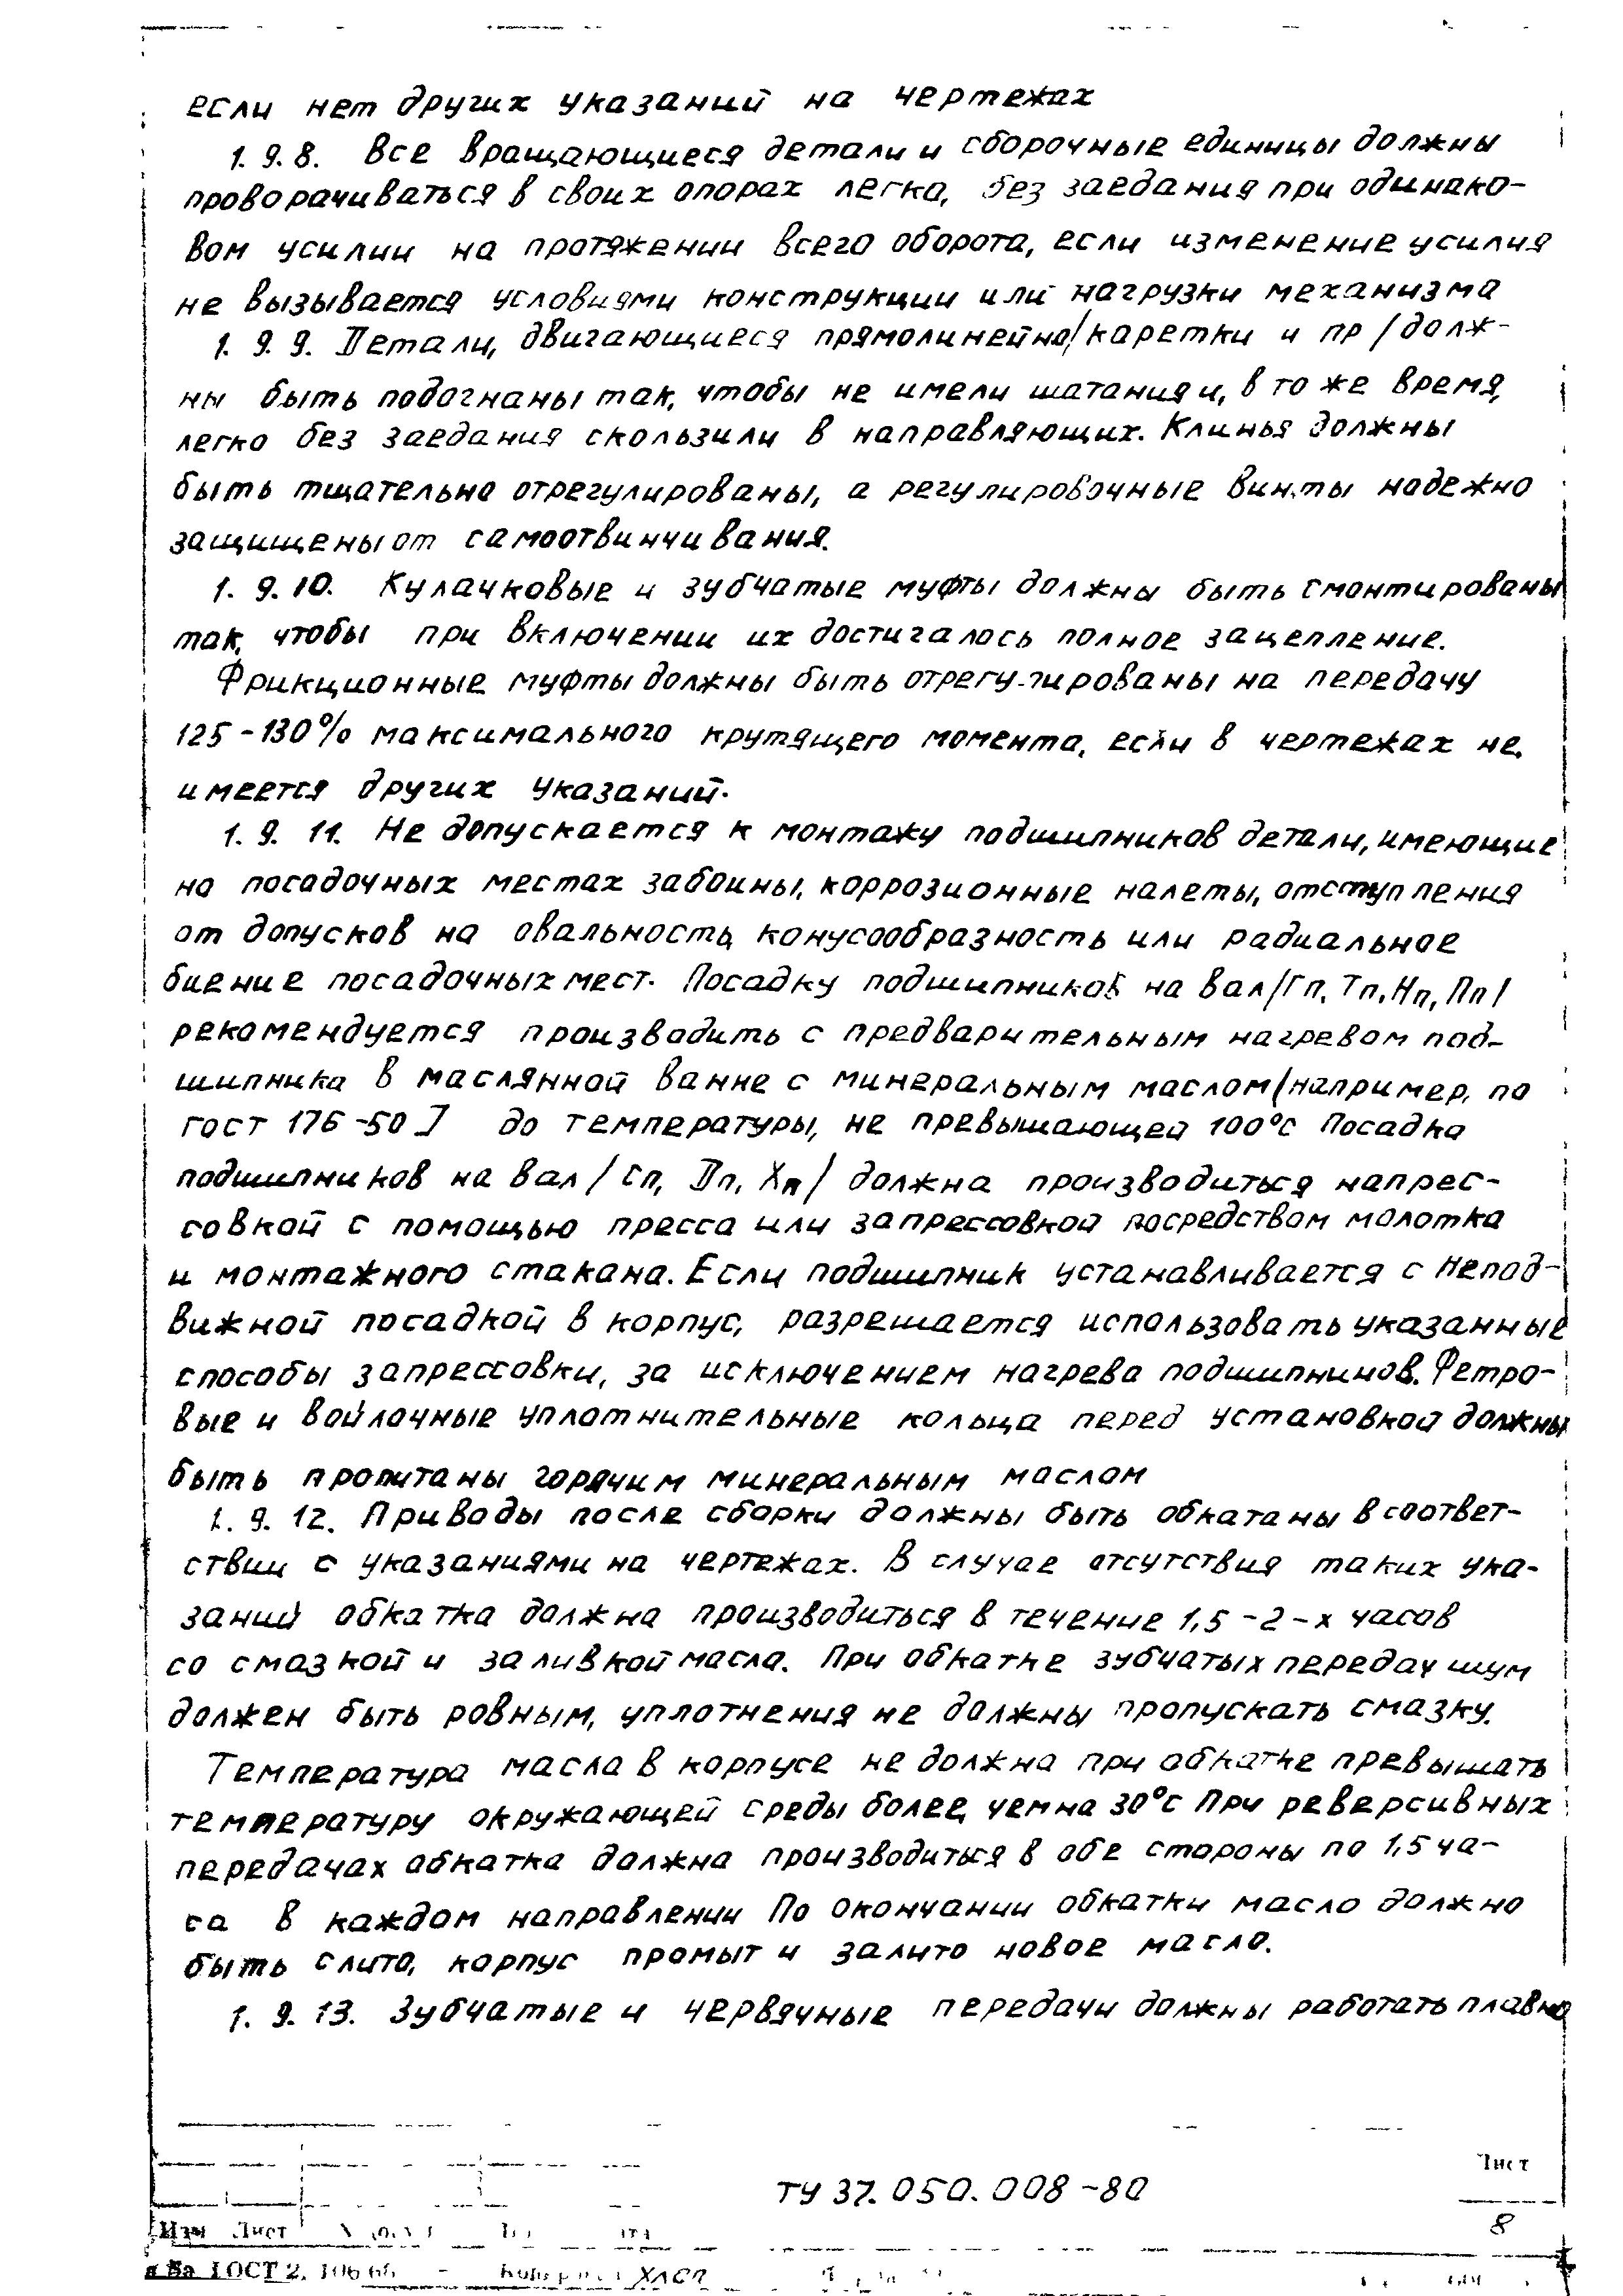 если нет других указаний на чертежах
1.9.8. Все вращающиеся детали и сборочные единицы должны
проворачиваться в своих опорах легко, без заедания при одинако-
вом усилии на протяжении всего оборота, если изменение усилия
не вызывается условиями конструкции или нагрузки механизма
1.9.9. Детали, двигающиеся прямолинейно/каретки и пр/долж-
ны быть подогнаны так, чтобы не имели шатания и, в то же время,
легко без заедания скользили в направляющих. Клинья должны
быть тщательно отрегулированы, а регулировочные винты надежно
защищены от самоотвинчивания.
1.9.10. Кулачковые и зубчатые муфты должны быть смонтированы
так, чтобы при включении их достигалось полное зацепление.
Фрикционные муфты должны быть отрегулированы на передачу
125-130% максимального крутящего момента, если в чертежах не
имеется других указаний.
1.9.11. Не допускается к монтажу подшипников детали, имеющие
на посадочных местах забоины, коррозионные налеты, отступления
от допусков на овальность, конусообразность или радиальное
биение посадочных мест. Посадку подшипников на вал/Гп, Тп, Нп, Пп/
рекомендуется производить с предварительным нагревом под-
шипника в маслянной ванне с минеральным маслом (например, по
ГОСТ 176-50] до температуры, не превышающей 100°С Посадка
подшипников на вал/Сп, Дп, Хп/ должна производиться напрес-
совкой с помощью пресса или запрессовкой посредством молотка
и монтажного стакана. Если подшипник устанавливается с непод-
вижной посадкой в корпус, разрешается использовать указанные
способы запрессовки, за исключением нагрева подшипников. Фетро-
вые и войлочные уплотнительные кольца перед установкой должны
быть пропитаны горячим минеральным маслом
1.9.12. Приводы после сборки должны быть обкатаны в соответ-
ствии с указаниями на чертежах. В случае отсутствия таких ука-
заний обкатка должна производиться в течение 1,5-2-х часов
со смазкой и заливкой масла. При обкатке зубчатых передач шум
должен быть ровным, уплотнения не должны пропускать смазку.
Температура масла в корпусе не должна при обкатке превышать
температуру окружающей среды более, чем на 30°С При реверсивных
передачах обкатка должна производиться в обе стороны по 1,5 ча-
са в каждом направлении По окончании обкатки масло должно
быть слито, корпус промыт и залито новое масло.
1.9.13. Зубчатые и червячные передачи должны работать плавно
ТУ 37.050.008-80
Лист
8
Изм Лист
ГОСТ 2.106-68